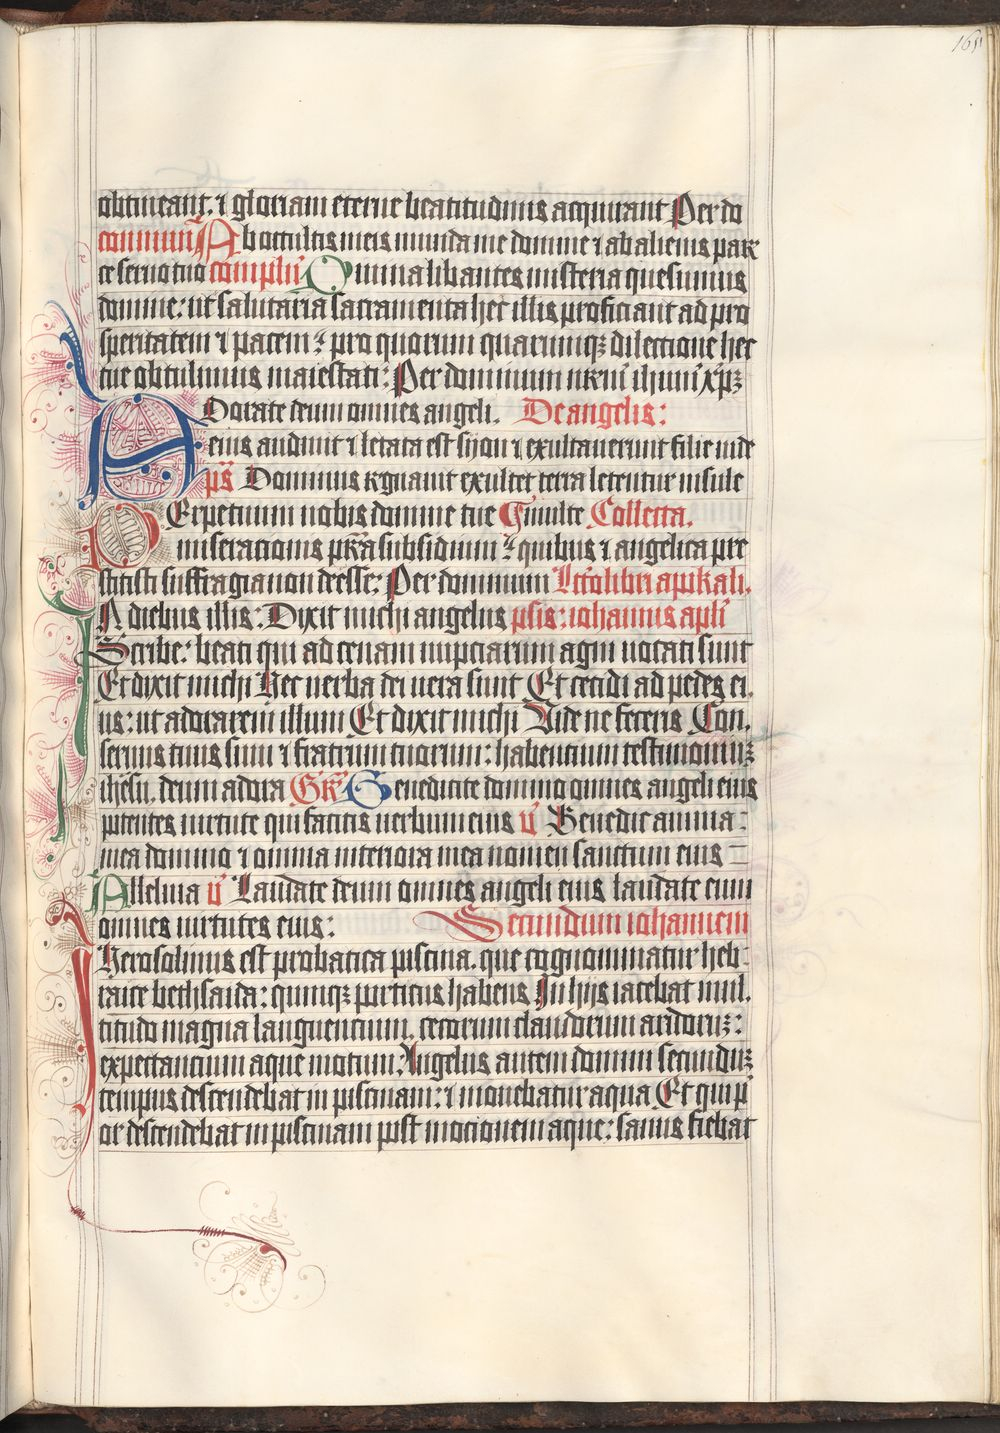 165
obtineant. ⁊ gloriam eterne beatitudinis acquirant Per do
commun̄ Ab occultis meis munda me domine ⁊ ab alienis parc
ce seruo tuo complū Omnia libantes misteria quesumus
domine: ut salutaria sacramenta hec illis proficiant ad pro
speritatem ⁊ pacem: pro quorum quarumqꝫ dilectione hec
tue obtulimus maiestati: Per dominum nr̄m ihum xp̄ꝫ
Adorate deum omnes angeli. De angelis:
eius audiuit ⁊ letata est syon ⁊ exultauerunt filie iude
ps̄ Dominus regnauit exultet terra letentur insule
Perpetuum nobis domine tue Collecta.
miseracionis pr̄a subsidium: quibus ⁊ angelica pre
stitisti suffragia non deesse: Per dominum Lc̄o libri apokali.
In diebus illis: Dixit michi angelus iohannis apl̄i
Scribe: beati qui ad cenam nupciarum agni uocati sunt
Et dixit michi Hec uerba dei uera sunt Et cecidi ad pedes ei
us: ut adorarem illum Et dixit michi Vide ne feceris Con.
seruus tuus sum ⁊ fratrum tuorum: habentium testimoniuꝫ
ihesu. deum adora Gr̄ Benedicite domino omnes angeli eius
potentes uirtute qui facitis uerbum eius v̄ Benedic anima:
mea domino ⁊ omnia interiora mea nomen sanctum eius
Alleluia v̄ Laudate deum omnes angeli eius laudate eum
omnes uirtutes eius: Secundum iohannem
Iherosolimis est probatica piscina. que cognominatur heb
raice bethsaida: quinqꝫ porticus habens In hijs iacebat mul.
titudo magna languencium. cecorum claudorum aridoruꝫ:
expectancium aque motum: Angelus autem domini secunduꝫ
tempus descendebat in piscinam: ⁊ mouebatur aqua Et qui pͥ
or descendebat in piscinam post mocionem aque: sanus fiebat